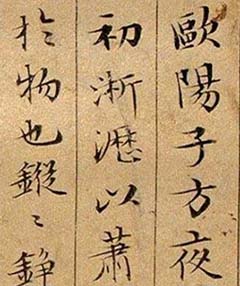 歐陽子方夜
初淅瀝以蕭
於物也鏦〻錚